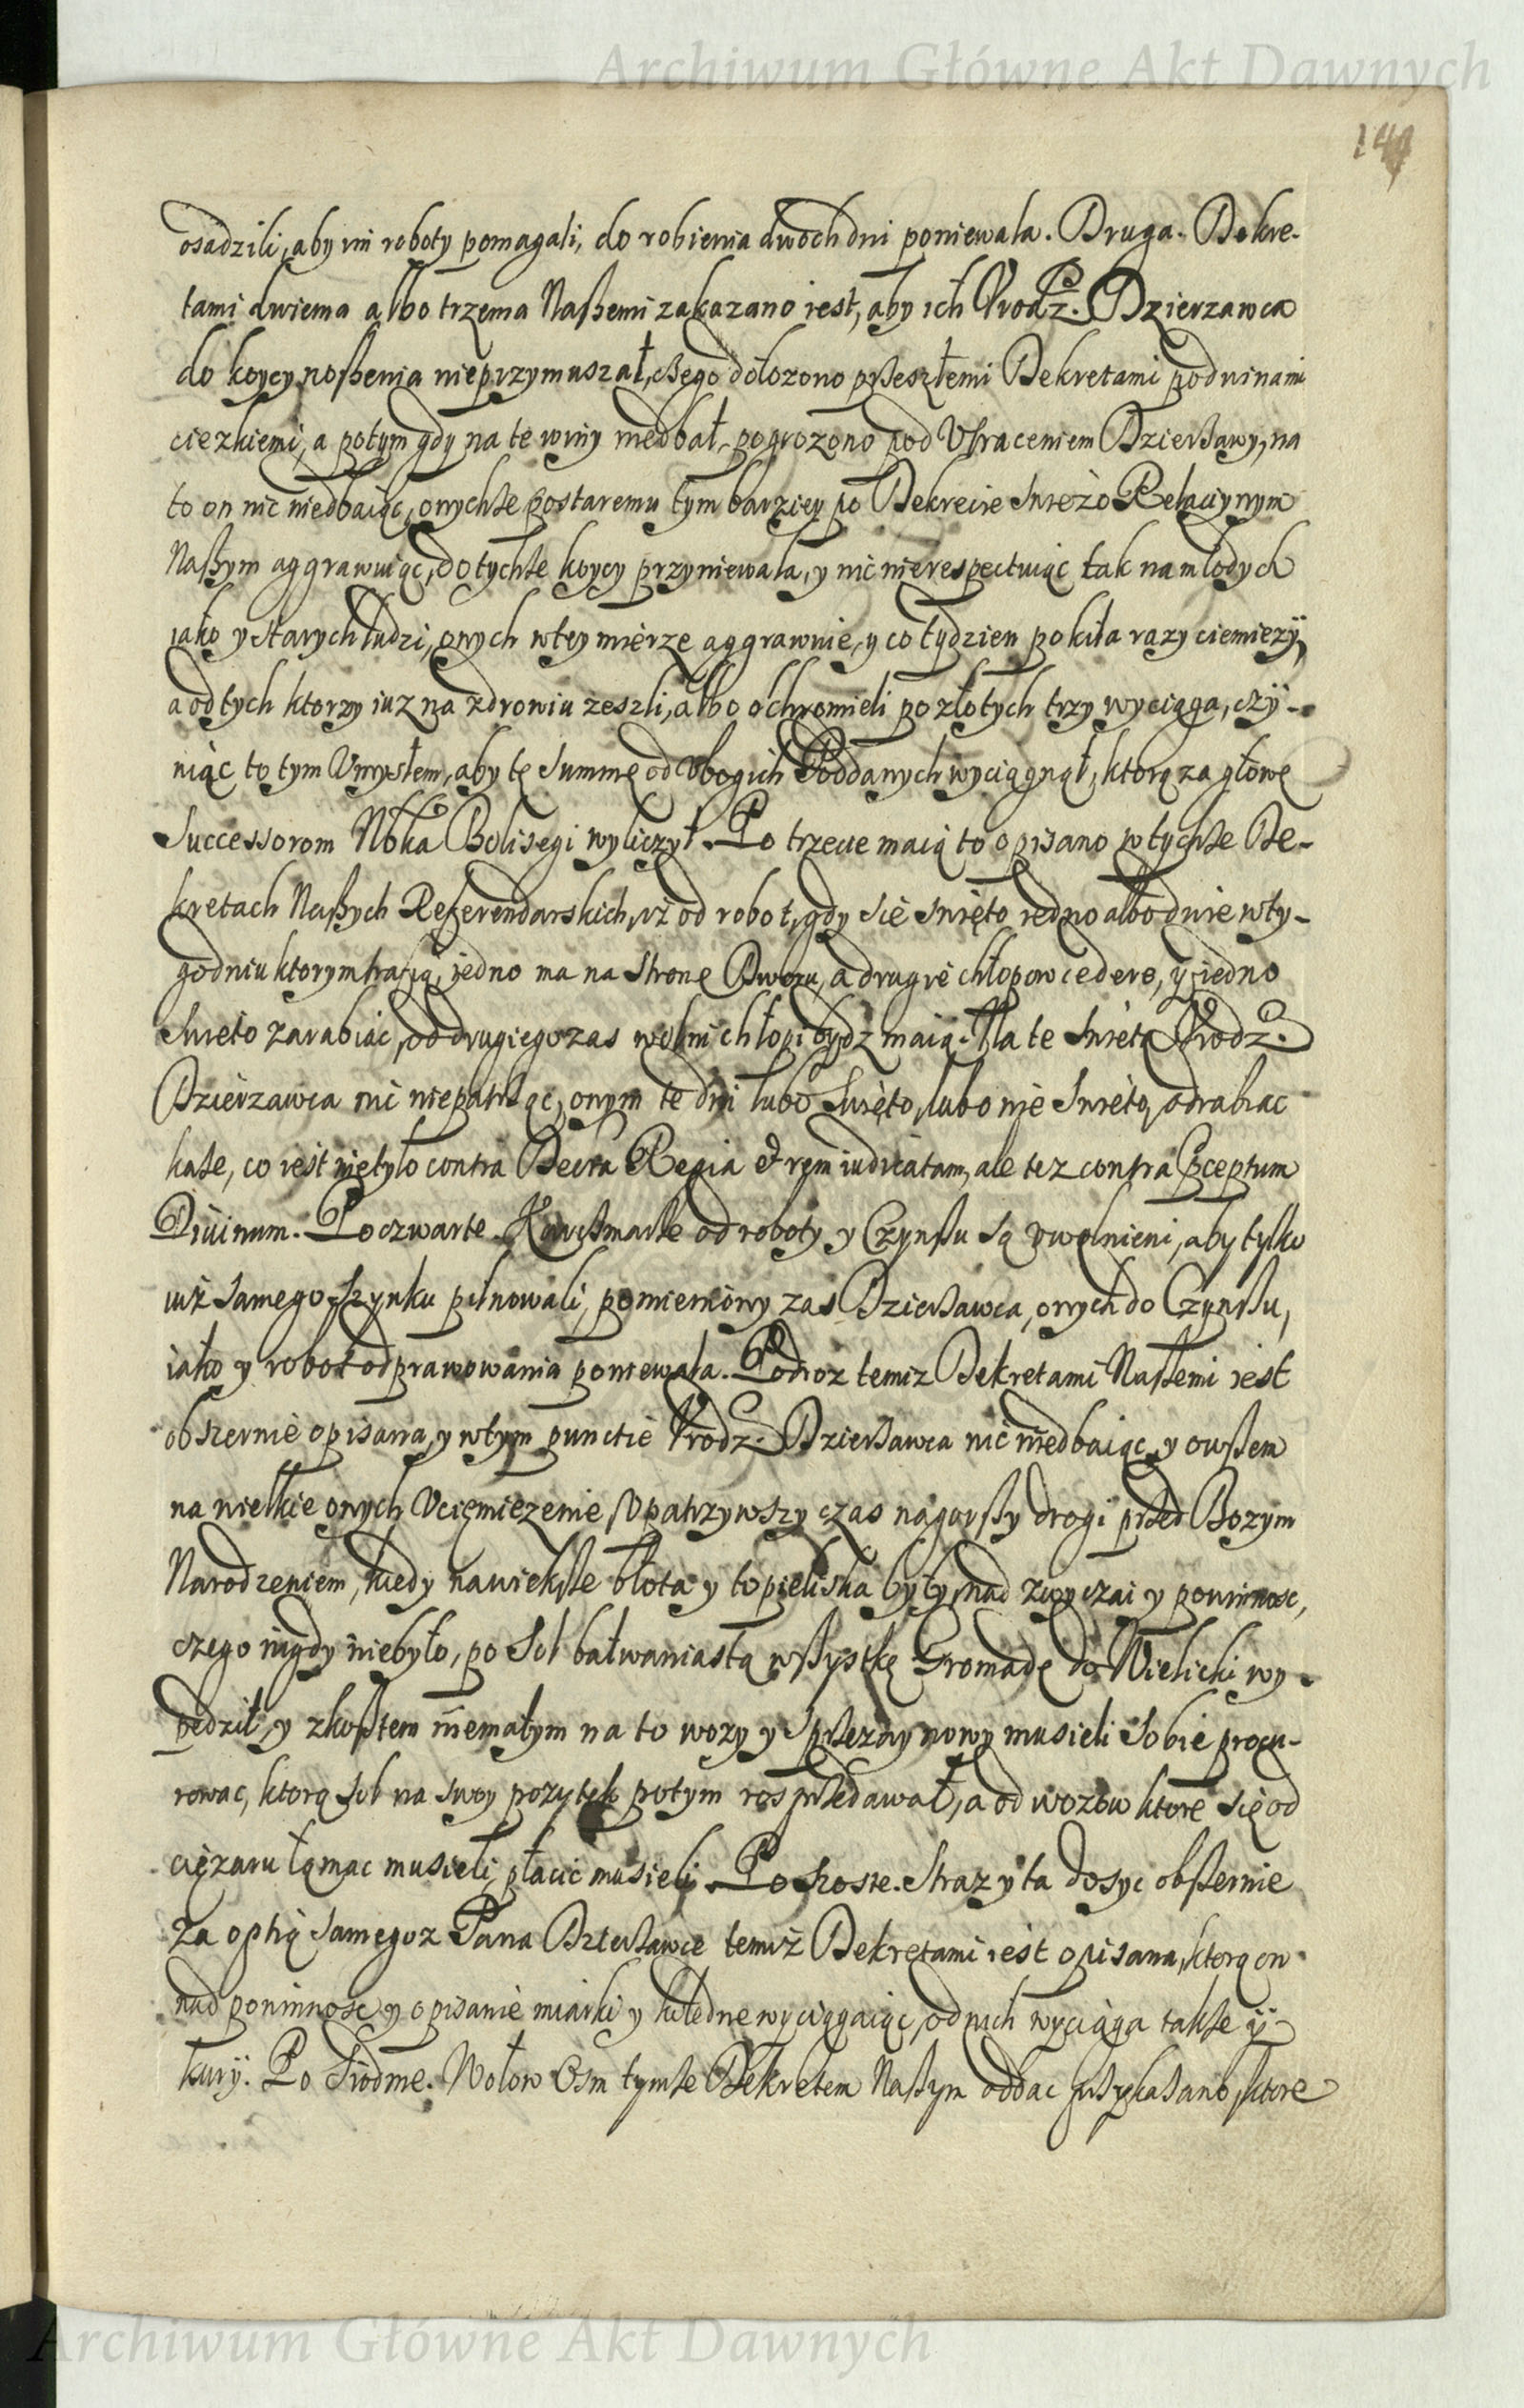 Archiwum Główne Akt Dawnych
141
osadzili, aby im roboty pomagali, do robienia dwoch dni poniewala. Druga. Dekre-
tami dwiema albo trzema Naszemi zakazano iest, aby ich Vrodz. Dzierzawca
do koycy noszenia nieprzymuszał, czego dołozono przeszłemi Dekretami pod winami
ciezkiemi, a potym gdy na te winy niedbał, pogrozono pod Vtraceniem Dzierżawy, na
to on nic niedbaiąc, onychże postaremu tym barziey po Dekrecie Swiezo Relacyinym
Naszym aggrawuiąc, do tychże koycy przyniewala, y nic nierespectuiąc tak na młodych
iako y starych ludzi, onych w tey mierze aggrawuie, y co tydzien po kila razy ciemiezÿ,
a od tych ktorzy iuz na zdrowiu zeszli, albo ochromieli po złotych trzy wyciąga, czÿ-
niąc to tym Vmysłem, aby tę Summę od Vbogich Poddanych wyciągnął, ktorą za głowę
Successorom Nbka Bolisegi wyliczył. Po trzecie maią to opisano w tychże De-
kretach Naszych Referendarskich, iż od robot, gdy się swięto iedno albo dwie w ty-
godniu ktorym trafią, iedno ma na Stronę Dworu, a drugie chłopow cedere, y iedno
Swieto zarabiac, od drugiego zas wolni chłopi bydz maią. Na te Swięta Vrodz.
Dzierzawca nic niepatrząc, onym te dni lubo Swięto, lubo nie Swięto, odrabiac
każe, co iest nietylo contra Decreta Regia & rem iudicatam, ale tez contra Pceptum
Divinum. Po czwarte. Karczmarze od roboty y Czynszu są vwolnieni, aby tylko
iuż samego szynku pilnowali, pomieniony zas Dzierżawca, onych do Czynszu,
iako y robot odprawowania poniewala. Podroz temiz Dekretami Naszemi iest
obszernie opisana, y w tym punctie Vrodz. Dzierżawca nic niedbaiąc, y owszem
na wielkie onych Vciemiezenie, Vpatrzywszy czas nagorszy drogi przed Bozym
Narodzeniem, kiedy nawieksze błota y topieliska były, nad zwyczai y powinnosc,
czego nigdy niebyło, po Sol bałwaniastą wszystkę Gromadę do Wielicki wy-
pędził, y zkosztem niemałym na to wozy y Sprzezay nowy musieli Sobie procu-
rowac, ktorą Sol na swoy pozytek potym rosprzedawał, a od wozow ktore się od
cięzaru łomac musieli, płacic musieli. Po szoste. Straz y ta dosyc obszernie
za optią samegoz Pana Dzierżawce temiż Dekretami iest opisana, ktorą on
nad powinnosc y opisanie miarki y kłodne wyciągaiąc, od nich wyciąga takze ÿ
kurÿ. Po Siodme. Wołow Osm tymże Dekretem Naszym oddac przykazano, ktore
Archiwum Główne Akt Dawnych